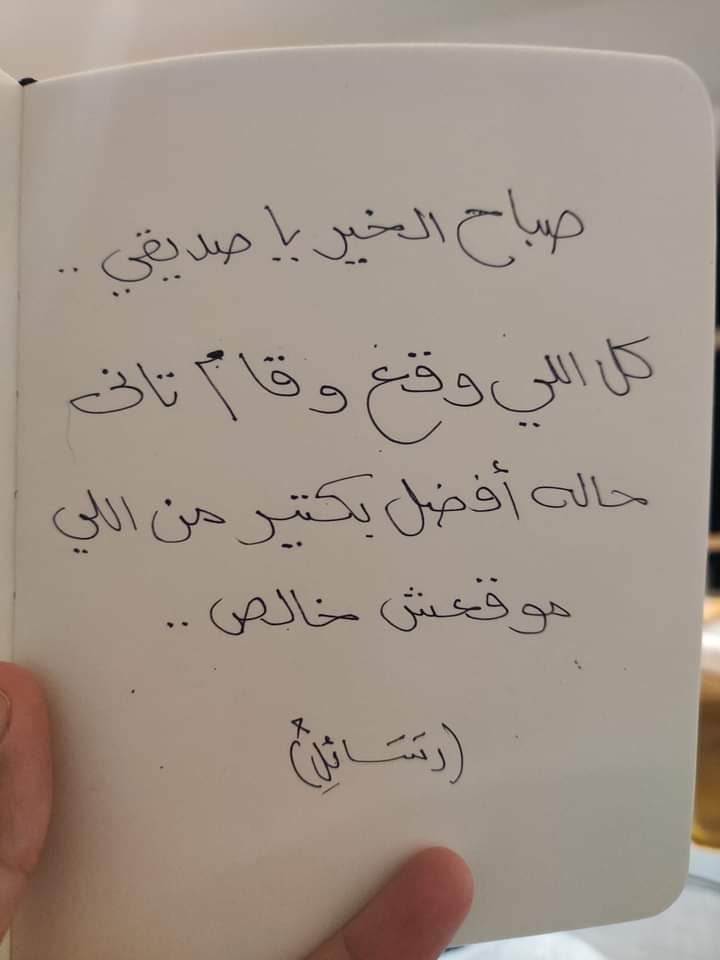 صباح الخير يا صديقي ..
كل اللي وقع وقام تانى
حاله أفضل بكتير من اللي
موقعش خالص ..
(رسَائِل)